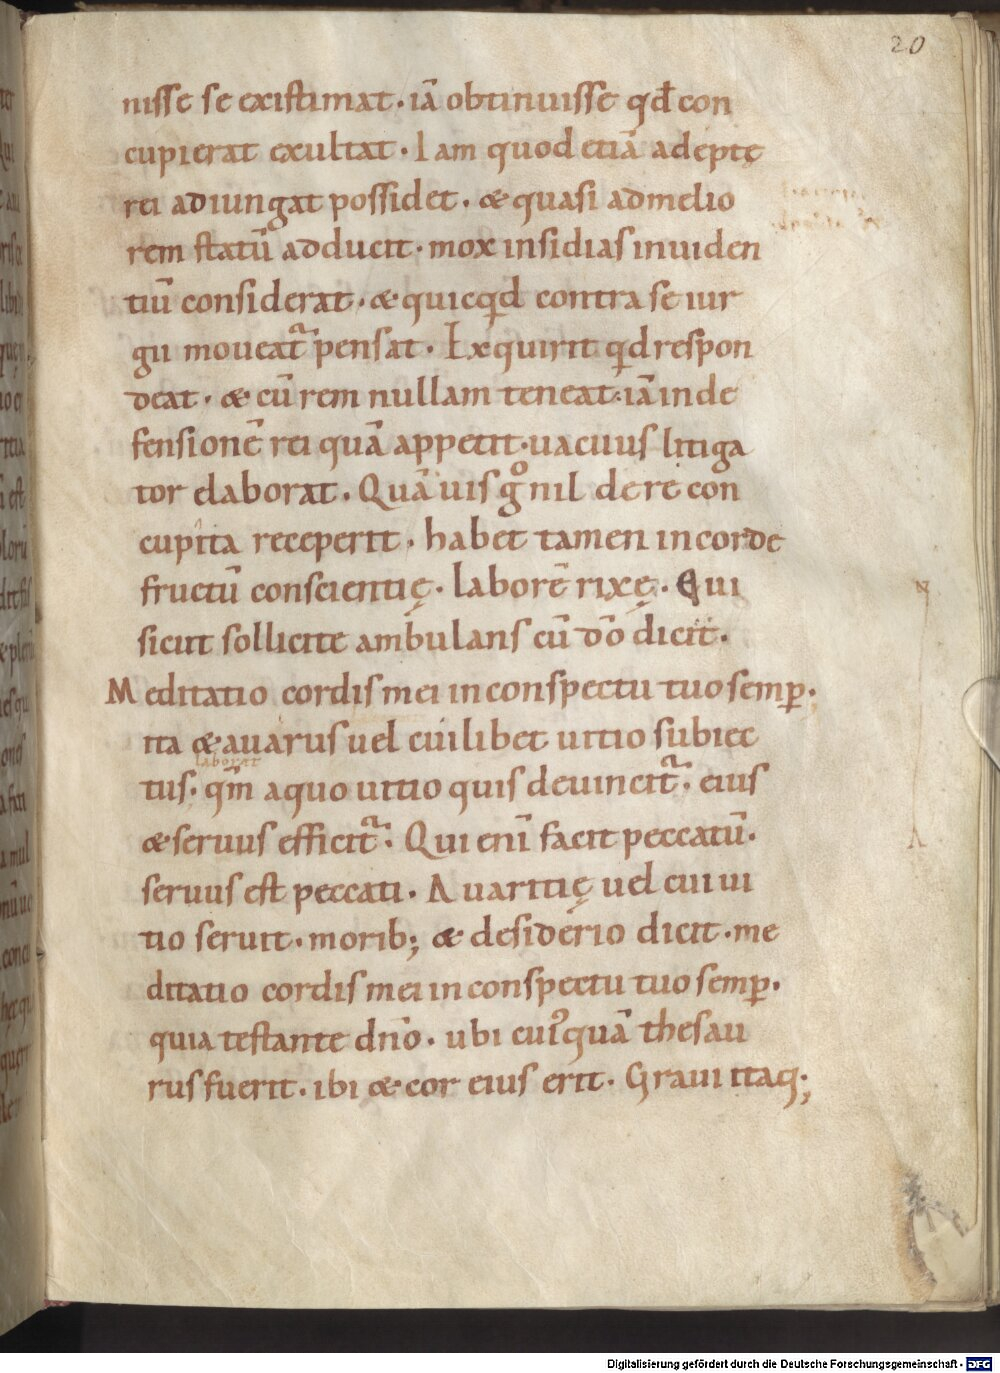 20
nisse se existimat · iā obtinuisse qđ con
cupierat exultat · Iam quod etiā adeptę
rei adiungat possidet · & quasi admelio
rem statū adducit · mox insidias inuiden
tiū considerat · & quicqd contra se iur
gii moueat᷑ pensat · Exquirit qd respon
deat · & cū rem nullam teneat · iā inde
fensionē rei quā appetit · uacuus litiga
tor elaborat · Quāuis gͦ nil de re con
cupita receperit · habet tamen in corde
fructū conscientię · laborē rixę · Qui
sicut sollicite ambulans cū dō dicit ·
Meditatio cordis mei in conspectu tuo semp ·
ita & auarus uel cuilibet uitio subiec
laborat
tus · qm̄ aquo uitio quis deuincit᷑ · eius
& seruus efficit᷑ · Qui enī facit peccatū ·
seruus est peccati · Auaritię uel cui ui
tio seruit · morib; & desiderio dicit · me
ditatio cordis mei in conspectu tuo semp ·
quia testante dn̄o · ubi cuiusquā thesau
rus fuerit · ibi & cor eius erit · Graui itaq;
Digitalisierung gefördert durch die Deutsche Forschungsgemeinschaft - DFG